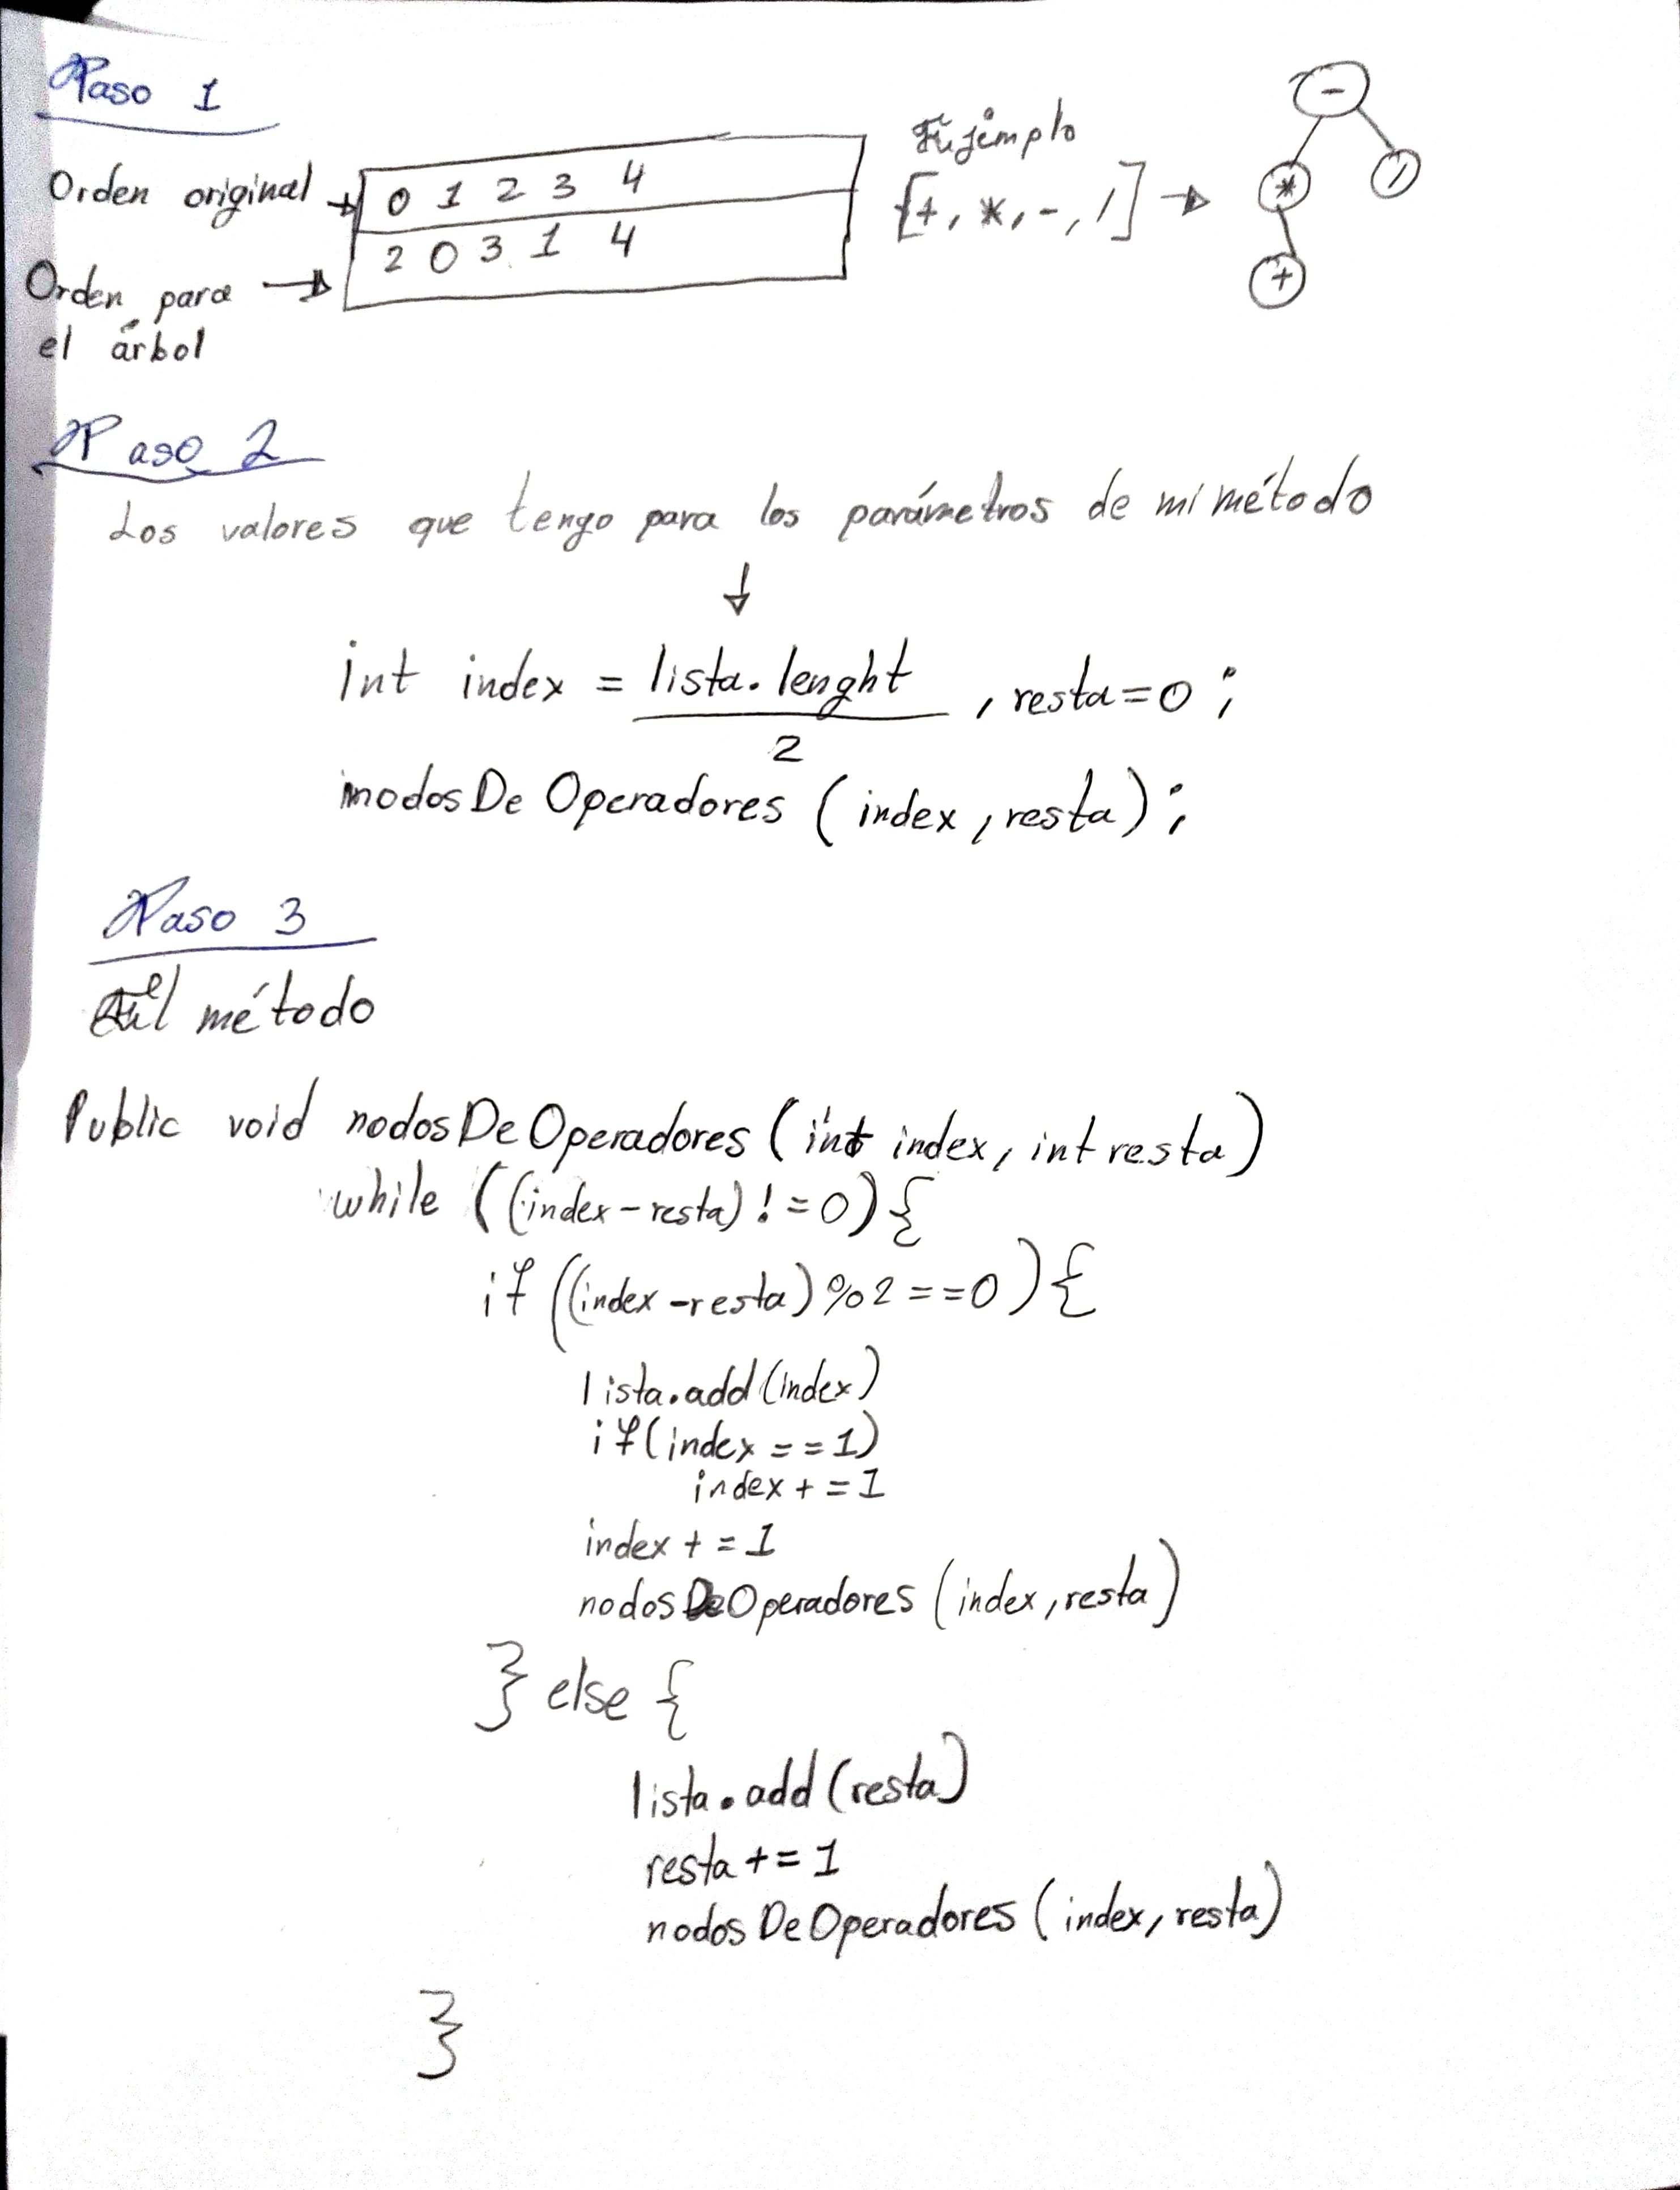 Paso 1
Orden original → 0 1 2 3 4
Orden para el árbol → 2 0 3 1 4
Ejemplo
[+, *, -, /] →
-
* /
+
Paso 2
Los valores que tengo para los parámetros de mi método
↓
int index = lista.lenght / 2 , resta=0;
nodosDeOperadores (index, resta);
Paso 3
el método
Public void nodosDeOperadores (int index, int resta)
while ((index-resta) != 0){
if ((index-resta)%2==0){
lista.add(index)
if(index==1)
index+=1
index+=1
nodosDeOperadores (index, resta)
} else {
lista.add(resta)
resta+=1
nodosDeOperadores (index, resta)
}